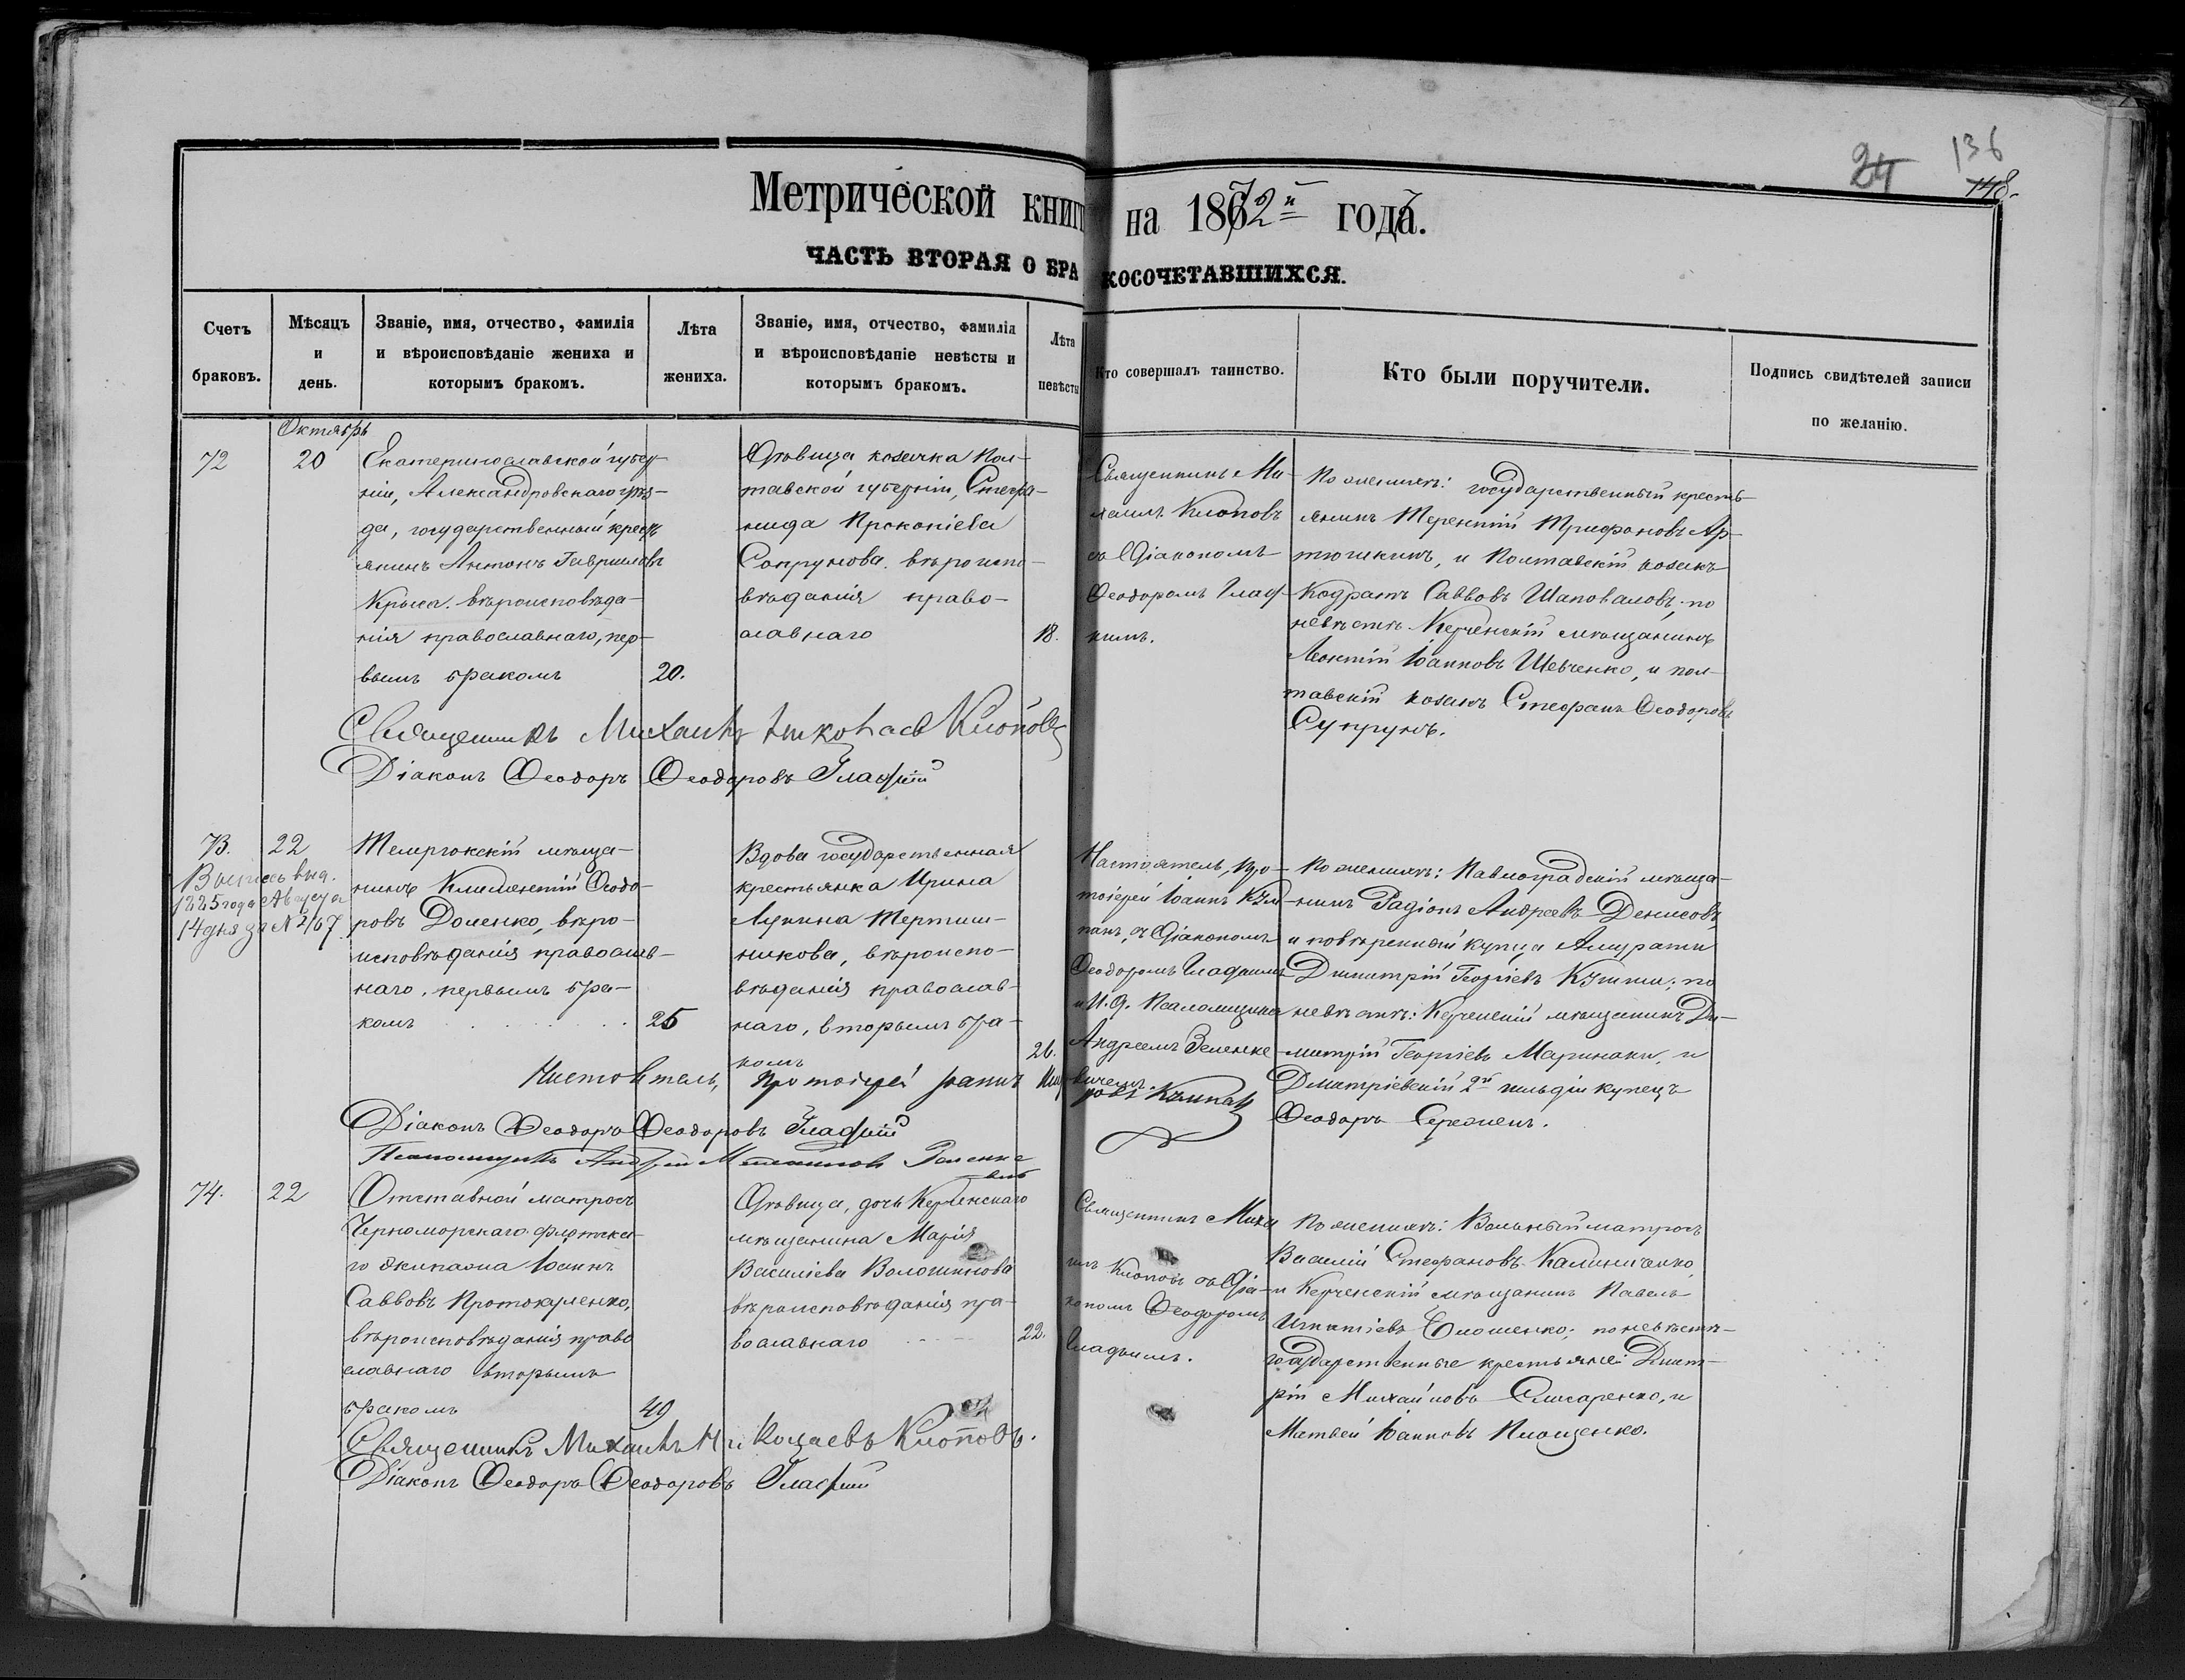 24 136
148.
Метрической книг на 1872й года.
ЧАСТЬ ВТОРАЯ О БРАКОСОЧЕТАВШИХСЯ.
Счетъ браковъ.
Мѣсяцъ и день.
Званіе, имя, отчество, фамилія и вѣроисповѣданіе жениха и которымъ бракомъ.
Лѣта жениха.
Званіе, имя, отчество, фамилія и вѣроисповѣданіе невѣсты и которымъ бракомъ.
Лѣта невѣсты
Кто совершалъ таинство.
Кто были поручители.
Подпись свидѣтелей записи по желанію.
Октябрь
72
20
Екатеринославской губер-
ніи, Александровскаго уѣз-
да, государственный кресть
янинъ Антонъ Гавриловъ
Крыса. вѣроисповѣда-
нія православнаго, пер-
вымъ бракомъ
20.
Дѣвица козачка Пол-
тавской губерніи, Стефа-
нида Прокопіева
Супрунова. вѣроиспо-
вѣданія право-
славнаго
18.
Священникъ Ми-
хаилъ Клоповъ
съ Діакономъ
Ѳеодоромъ Глад-
кимъ.
По женихѣ: государственный кресть-
янинъ Терентій Трифоновъ Ар-
тюшкинъ, и Полтавскій козакъ
Кодратъ Саввовъ Шаповаловъ; по
невѣстѣ Керченскій мѣщанинъ
Леонтій Іоанновъ Шевченко, и пол-
тавскій козакъ Стефанъ Ѳеодоровъ
Супрунъ.
Священникъ Михаилъ Николаевъ Клоповъ
Діаконъ Ѳеодоръ Ѳеодоровъ Гладкій
73.
22
Выпись выд.
1885 года Августа
14 дня за № 267
Темрюкскій мѣща-
нинъ Климентій Ѳеодо-
ровъ Доленко, вѣро-
исповѣданія православ-
наго, первымъ бра-
комъ
25
Вдова государственная
крестьянка Ирина
Лукина Тертиш-
никова, вѣроиспо-
вѣданія православ-
наго, вторымъ бра-
комъ
26.
Настоятель, Про-
тоіерей Іоаннъ Кум-
панъ, съ Діакономъ
Ѳеодоромъ Гладкимъ
и И. д. Псаломщика
Андреемъ Зеленке-
вичемъ.
По женихѣ: Павлоградскій мѣща-
нинъ Радіонъ Андреевъ Денисовъ,
и повѣренный купца Амурати
Димитрій Георгіевъ Кушни; по
невѣстѣ: Керченскій мѣщанинъ Ди-
митрій Георгіевъ Маринаки, и
Дмитріевскій 2й гильдіи купецъ
Ѳеодоръ Сережен.
Настоятель, Протоіерей Іоаннъ Кумпанъ
Діаконъ Ѳеодоръ Ѳеодоровъ Гладкій
Псаломщикъ Андрей Зеленке
вичъ
74.
22
Отставной матросъ
Черноморскаго флотска-
го экипажа Іоаннъ
Саввовъ Протокуленко,
вѣроисповѣданія право
славнаго вторымъ
бракомъ
49
Дѣвица, дочь Керченскаго
мѣщанина Марія
Василіева Волошинова
вѣроисповѣданія пра-
вославнаго
22.
Священникъ Миха
илъ Клоповъ съ Діа-
кономъ Ѳеодоромъ
Гладкимъ.
По женихѣ: Вольный матросъ
Василій Стефановъ Калиниченко,
и Керченскій мѣщанинъ Павелъ
Игнатіевъ Блошенко; по невѣстѣ-
государственные крестьяне: Дмит-
рій Михайловъ Слисаренко, и
Матвей Іоанновъ Площенко.
Священникъ Михаилъ Николаевъ Клоповъ.
Діаконъ Ѳеодоръ Ѳеодоровъ Гладкій